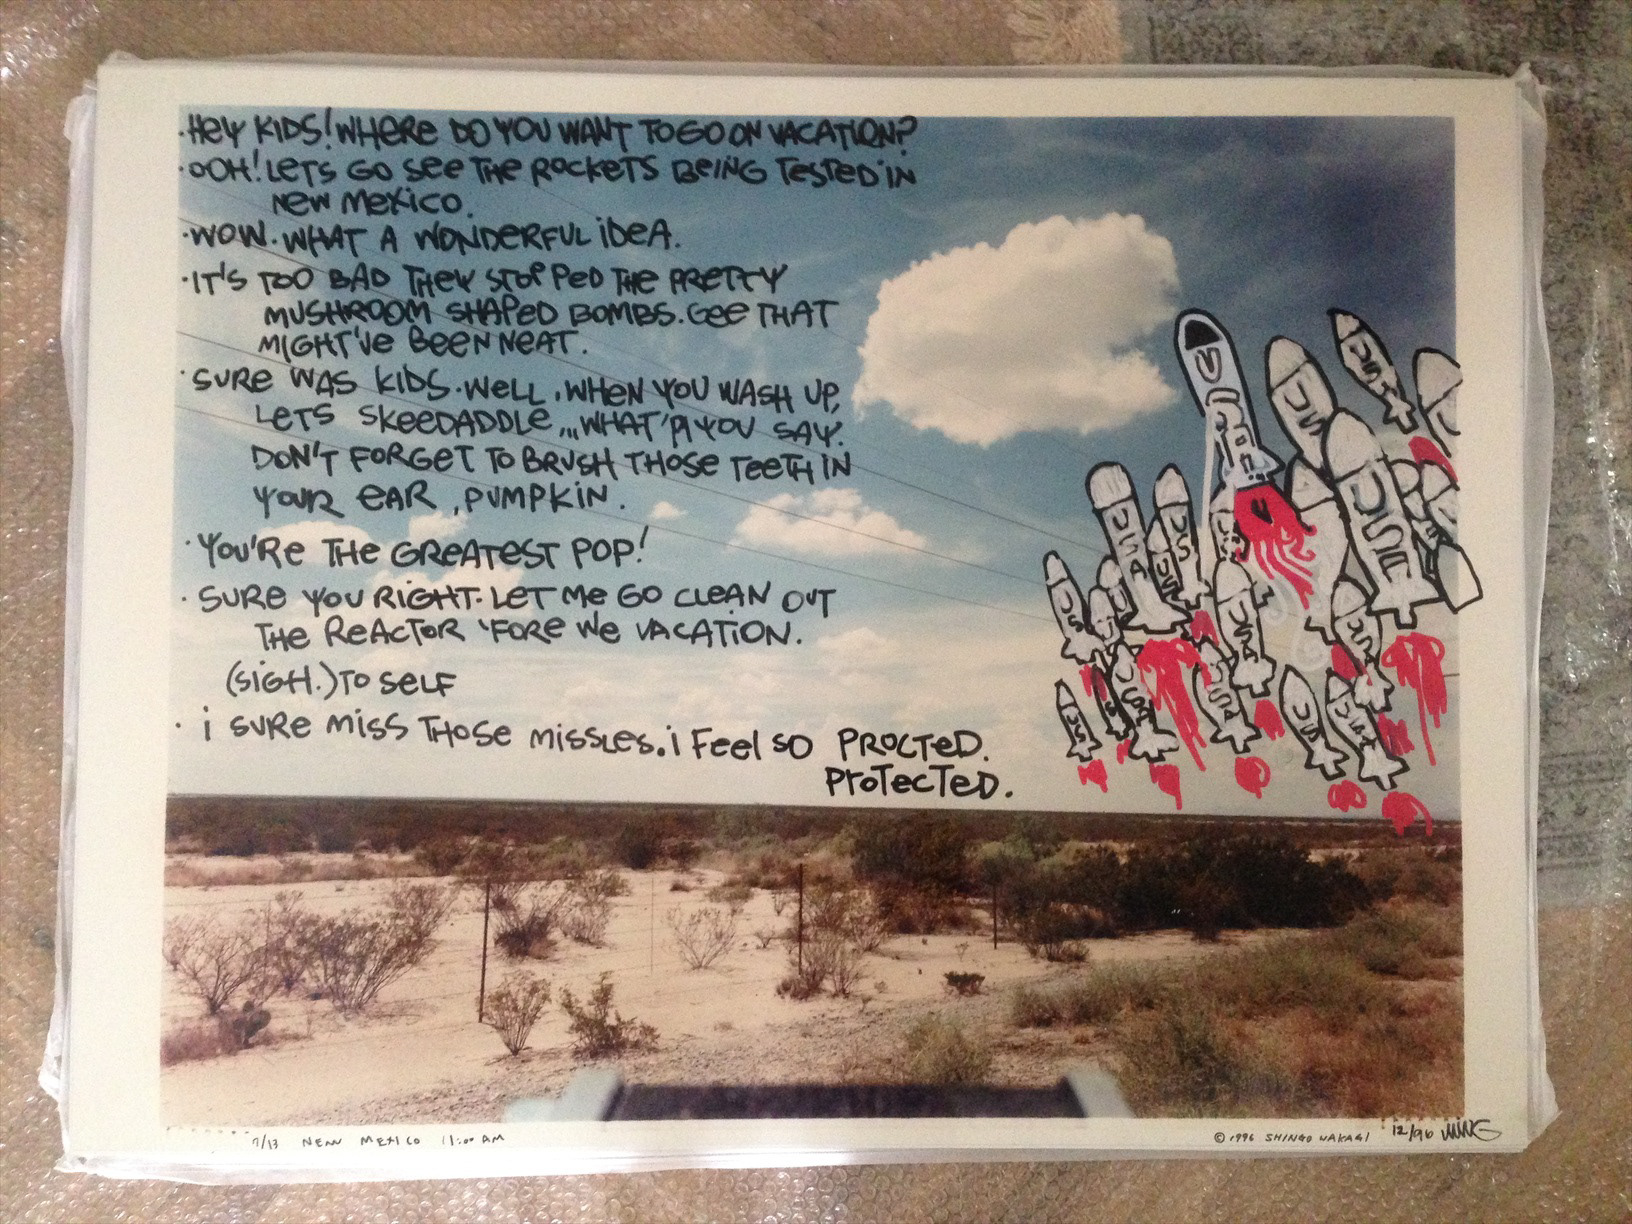 ·HEY KIDS! WHERE DO YOU WANT TO GO ON VACATION?
·OOH! LETS GO SEE THE ROCKETS BEING TESTED IN
NEW MEXICO.
·WOW. WHAT A WONDERFUL IDEA.
·IT'S TOO BAD THEY STOPPED THE PRETTY
MUSHROOM SHAPED BOMBS. GEE THAT
MIGHT'VE BEEN NEAT.
·SURE WAS KIDS. WELL, WHEN YOU WASH UP,
LETS SKEEDADDLE,,,WHAT YOU SAY.
DON'T FORGET TO BRUSH THOSE TEETH IN
YOUR EAR, PUMPKIN.
·YOU'RE THE GREATEST POP!
·SURE YOU RIGHT. LET ME GO CLEAN OUT
THE REACTOR 'FORE WE VACATION.
(SIGH.) TO SELF
·i SURE MISS THOSE MISSLES. i FEEL SO PROCTED.
PROTECTED.
USA
US
US
USA
USA
US
USA
7/13 NEW MEXICO 11:00 AM
© 1996 SHINGO WAKAGI 12/96